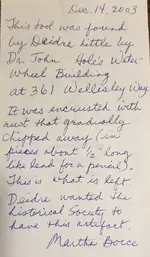 Dec. 14, 2003
This tool was found
by Deidre Little by
Dr. John Hole's Water
Wheel Building
at 361 Wellesley Way.
It was encrusted with
rust that gradually
chipped away (in
pieces about ½" long
like lead for a pencil).
This is what is left.
Deidre wanted the
historical Society to
have this artifact.
Martha